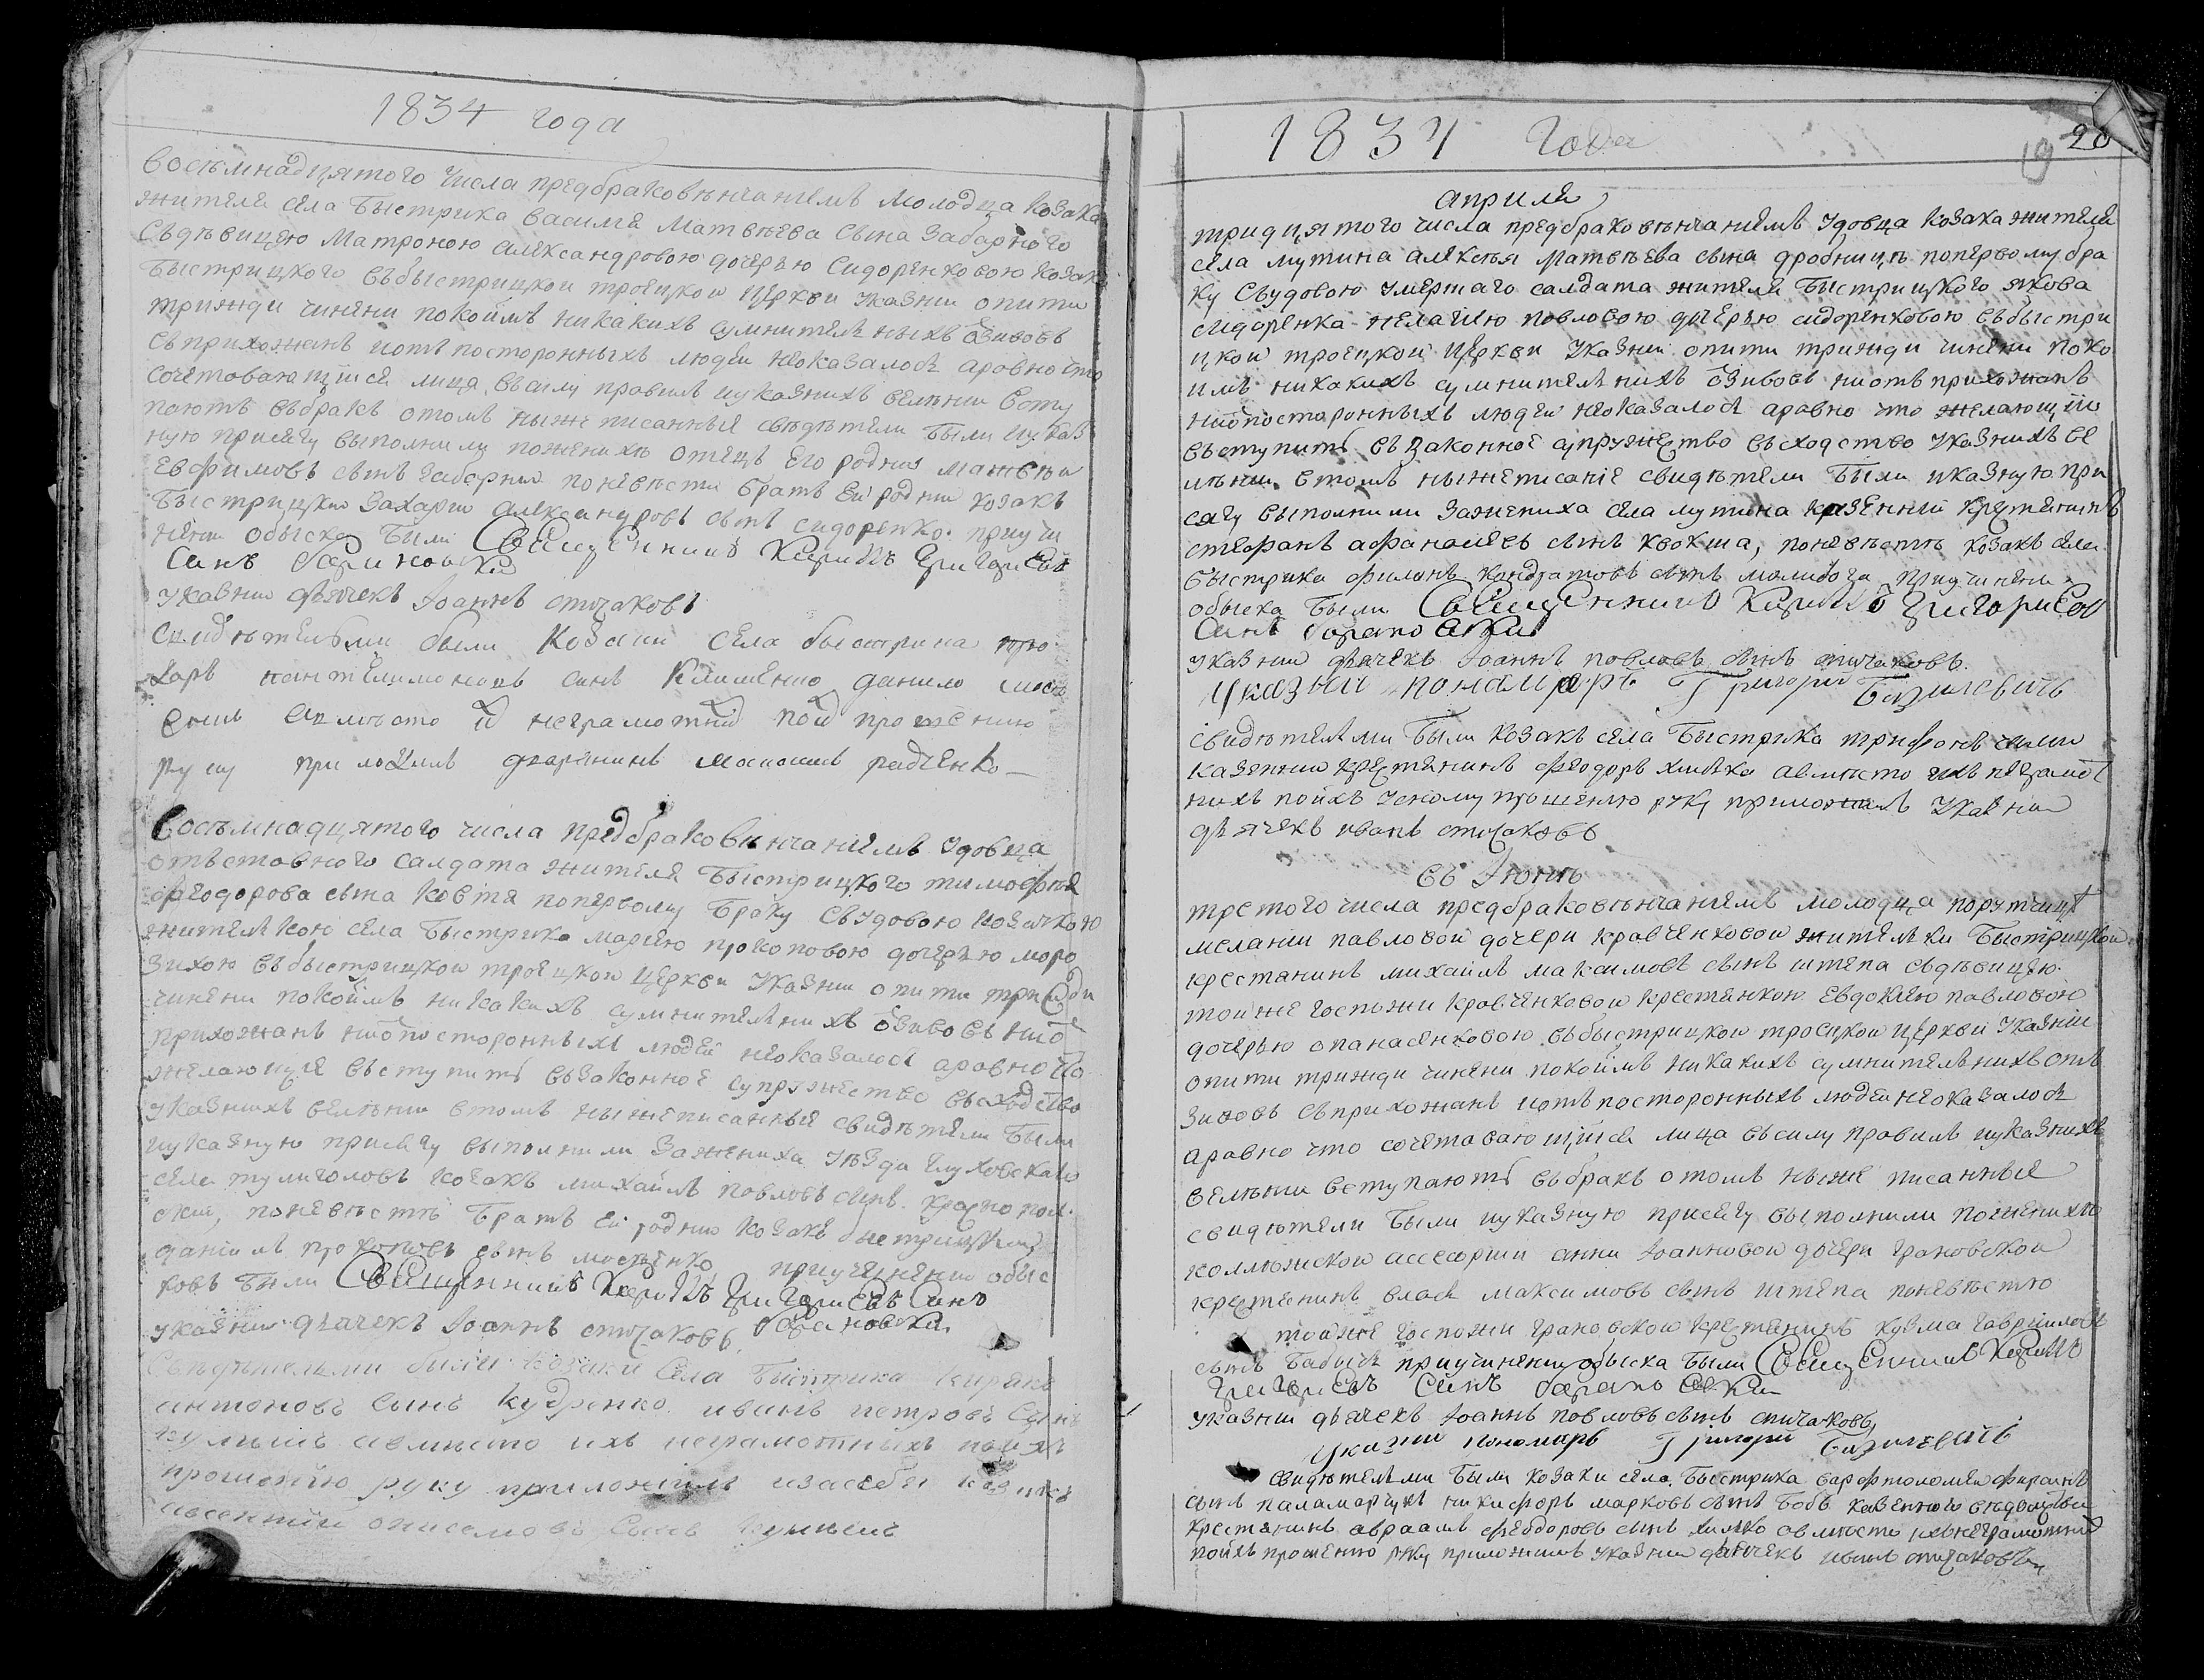 1834 года
Восѣмнадцятого Числа предбраковѣнчаниемъ Молодца Козака
жителя села Быстрика василія Матвѣева сына Забарного
Сьдѣвицею Матроною александровою дочерью Сидоренковою козака
Быстрицкого въбыстрицкой троецкой церкви указнии опити
трижди чинени покоимъ никакихъ сумнителныхъ ѿзивовъ
съприхожанъ иотъ посторонныхъ людей неоказалось аравно что
сочетовающиися лица всилу правилъ иуказнихъ велѣнии всту
паютъ въбракъ отомъ ниже писанные свѣдѣтели были иуказ
ную присягу выполнили поженихѣ отецъ его родной матвѣй
Евфимовъ сынъ Забарний поневѣсти братъ ей родний козакъ
Быстрицкий Захарий александровъ сынъ сидоренко. приучи
нении обыска были Священникъ Кирилъ Григориевъ
Синъ Барановский
указний дячекъ Іоаннъ отичаковъ
Свидѣтелями были Козаки Села быстрика про
хоръ пантелимоновъ синъ Клименко данило
авмѣсто неграмотній под прошению
руку приложилъ дворянинъ радченко
Восѣмнадцятого числа предбраковѣнчаниемъ удовца
отъставного салдата жителя Быстрицкого тимофѣя
феодорова сына Ковтя поперьвому браку съудовою козачкою
жителкою села Быстрика мариею прокоповою дочерью моро
зихою въбыстрицкой троецкой церкви указнии опити трижди
чинени покоимъ никакихъ сумнителнихъ ѿзивовъ ниѿ
прихожанъ ниѿпосторонныхъ людей неоказалося аравно что
желающие въступить възаконное супружество въсходство
указнихъ велѣнии втомъ нижеписанные свидѣтели были
иуказную присягу выполнили Зажениха уѣзда глуховскаго
села тулиголовъ козакъ михаилъ повловъ сынъ. краснопол
ский, поневѣстѣ братъ ей родний козакъ быстрицкий
даниилъ прокоповъ сынъ приучинении обыс
ковъ были Священникъ Кирилъ Григориевъ Синъ
указний дячекъ Іоаннъ отичаковъ Барановский
Свѣдѣтелями были козаки Села Быстрика Кирикъ
антоновъ Сынъ Кудренко иванъ петровъ Сынъ
авмѣсто ихъ неграмотныхъ поихъ
прошенію руку приложилъ изасебя козакъ
онисимовъ Сынъ
1834 Года
19 20
априля
тридцятого числа предбраковѣнчаниемъ Удовца козака жителя
села мутина алексѣя матвѣева сына дробницѣ поперьвому бра
ку съудовою умершаго салдата жителя Быстрицкого якова
сидоренка мелашею повловою дочерью сидоренковою въбыстри
цкой троецкой церкви указнии опити трижди чинени поко
имъ никакихъ сумнителнихъ ѿзивовъ ниотъ прихожанъ
ниѿпосторонныхъ людей неоказалося аравно что желающии
въступить въ законное супружество въсходство указнихъ ве
лѣнии. втомъ нижеписаніе свидѣтели были иказную при
сягу выполнили зажениха села мутина казенний крестянинъ
стефанъ афанасиевъ сынъ квокша, поневѣстѣ козакъ села
быстрика филонъ кондратовъ сынъ молибога приучинени
обыска были Священникъ Кирилъ Григориевъ
Синъ барановский
указний дячекъ Іоаннъ повловъ сынъ отичаковъ.
Указній пономаръ Григорій Базилевичь
свидѣтелями были козакъ села Быстрика трифонъ
казенний крестянинъ феодоръ химко авмѣсто ихъ неграмот
нихъ поихъ прошению руку приложилъ указний
дячекъ иванъ отичаковъ
въ Июнѣ
третого числа предбраковѣнчаниемъ молодца поруччицѣ
мелании павловой дочери кравченковой жителки Быстрицкой
крестанинъ михаилъ максимовъ сынъ штепа сьдѣвицею
тойже госпожи кравченковой крестянкою Евдокиею павловою
дочерью опанасенковою въбыстрицкой троецкой церкви указніи
опити трижди чинени покоимъ никакихъ сумнителнихъ отъ
зивовъ съприхожанъ иотъ посторонныхъ людей неоказалося
аравно что сочетовающиися лица въсилу правилъ иуказнихъ
велѣнии вступаютъ въбракъ отомъ ниже писанные
свидѣтели были иуказную присягу выполнили поженихѣ
коллежской ассесорши анни Іоанновой дочери грановской
крестянинъ власъ максимовъ сынъ штепа поневѣстю
тойже госпожи грановской крестянинъ кузма гавриловъ
сынъ Бабычъ приучинении обыска были Священникъ Кирилъ
Григориевъ Синъ барановский
указний дячекъ Іоаннъ повловъ сынъ отичаковъ
Указний пономаръ Григорій Базилевичъ
свидѣтелями были козаки села Быстрика варфтоломей
сынъ паламарчукъ никифоръ марковъ сынъ Бобъ казенного вѣдомства
крестянинъ авраамъ феодоровъ сынъ химко авмѣсто ихънеграмотнихъ
поихъ прошению руку приложилъ указний дячекъ иванъ отичаковъ